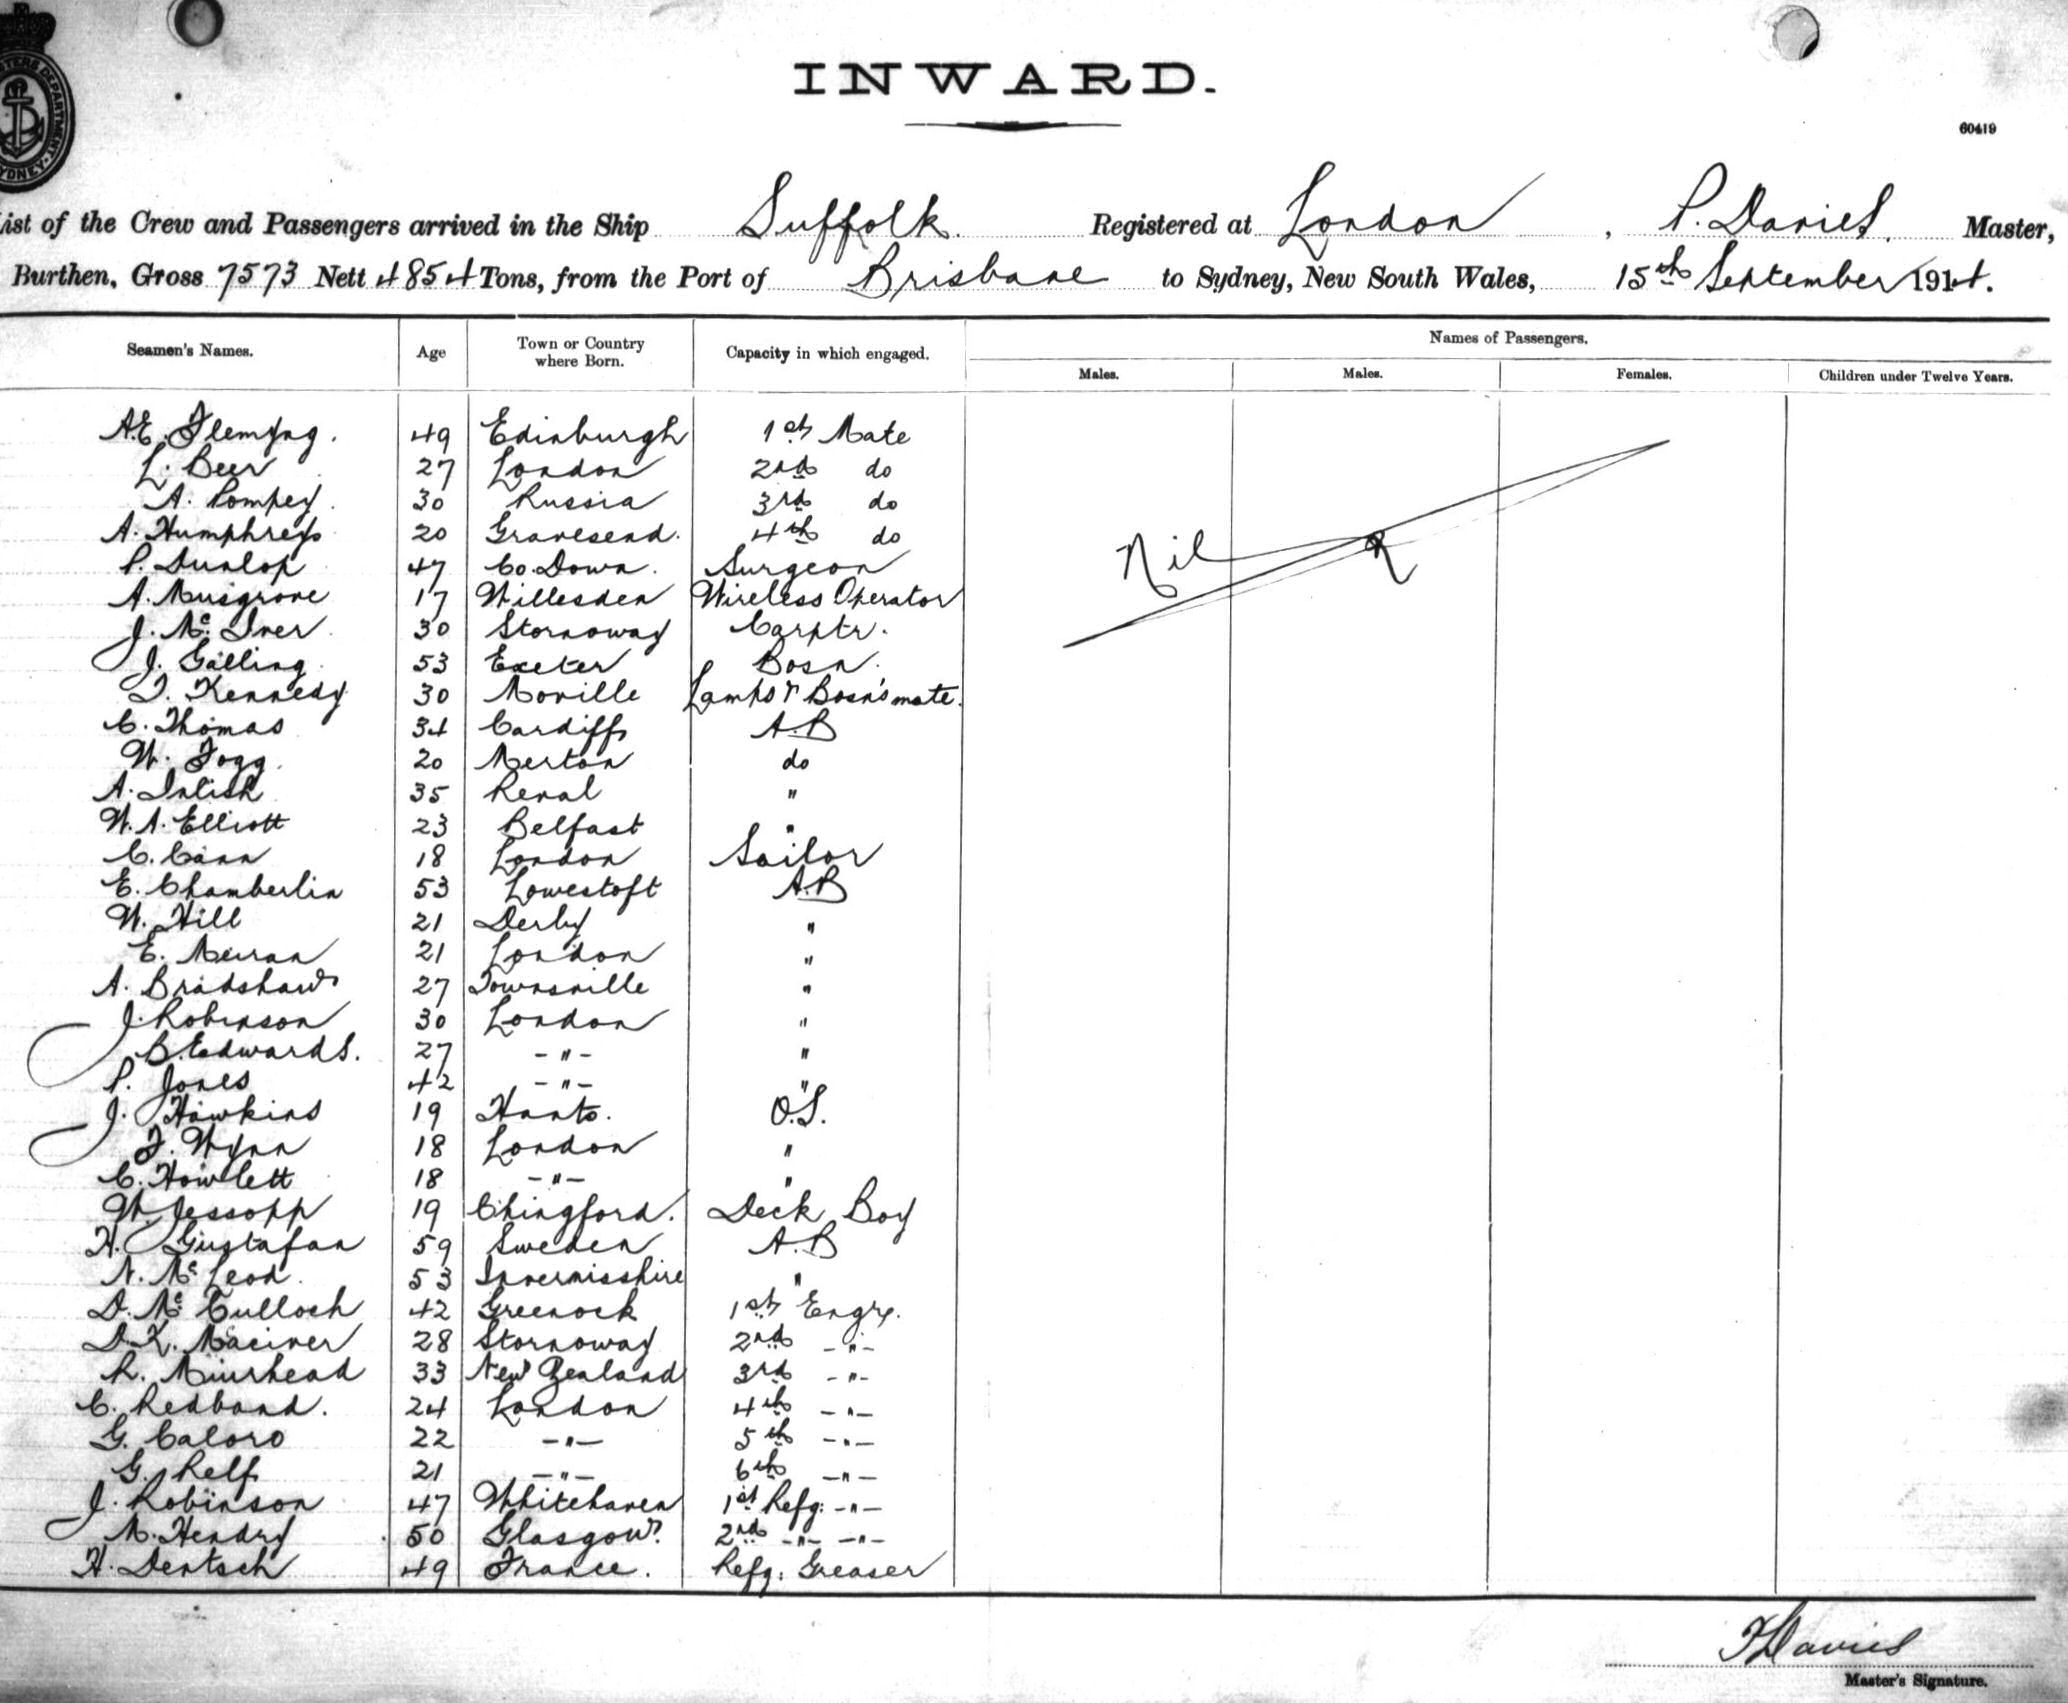 INWARD.
60419
List of the Crew and Passengers arrived in the Ship Suffolk. Registered at London, P. Davies. Master,
Burthen, Gross 7573 Nett 4854 Tons, from the Port of Brisbane to Sydney, New South Wales, 15th September 1914.
Names of Passengers.
Seamen's Names. Age Town or Country where Born. Capacity in which engaged. Males. Males. Females. Children under Twelve Years.
A.E. Flemyng. 49 Edinburgh 1st Mate
L. Beer 27 London 2nd do
A. Pompey. 30 Russia 3rd do
A. Humphreys 20 Gravesend. 4th do
P. Dunlop 47 Co. Down. Surgeon
Nil
A. Musgrove 17 Willesden Wireless Operator
J. Mc Iver 30 Stornoway Carptr.
J. Galling 53 Exeter Bosn.
T. Kennedy 30 Moville Lamps & Bosn's mate.
C. Thomas 34 Cardiff A.B
W. Fogg. 20 Merton do
A. Inlish 35 Reval "
W.A. Elliott 23 Belfast "
C. Cann 18 London Sailor
E. Chamberlin 53 Lowestoft A.B
W. Hill 21 Derby "
E. 21 London "
A. Bradshaw 27 Townsville "
J. Robinson 30 London "
B. Edwards. 27 -"- "
P. Jones 42 -"- "
J. Hawkins 19 Hants. O.S.
F. Wynn 18 London "
C. Howlett 18 -"- "
W. Jessopp 19 Chingford. Deck Boy
H. Gustafan 59 Sweden A.B
N. Mc Leod. 53 Invernisshire "
D. Mc Culloch 42 Greenock 1st Engr.
D.K. Maciver 28 Stornoway 2nd -"-
R. Muirhead 33 New Zealand 3rd -"-
C. Redband. 24 London 4th -"-
G. Caloro 22 -"- 5th -"-
G. Relf 21 -"- 6th -"-
J. Robinson 47 Whitehaven 1st Refg: -"-
M. Hendry 50 Glasgow. 2nd -"- -"-
H. Dentsch 49 France. Refg: Greaser
Davies
Master's Signature.